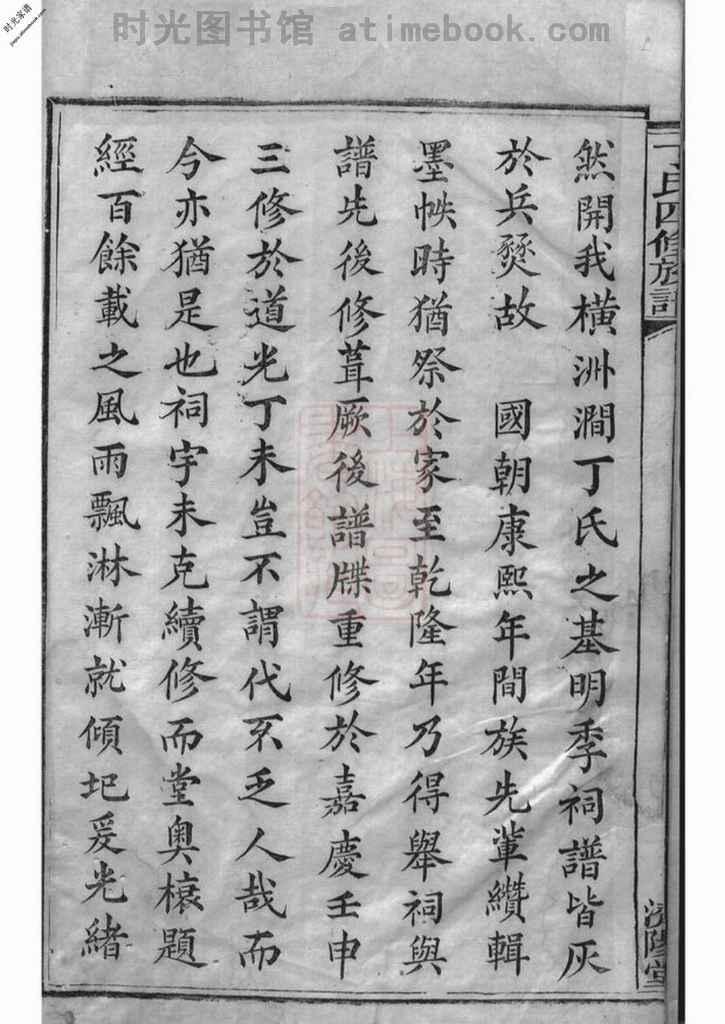 时光图书馆 atimebook.com
时光家谱
丁氏四修族譜
濟陽堂
然開我橫洲澗丁氏之基明季祠譜皆灰
於兵燹故　國朝康熙年間族先輩纘輯
墨帙時猶祭於家至乾隆年乃得舉祠與
譜先後修葺厥後譜牒重修於嘉慶壬申
三修於道光丁未豈不謂代不乏人哉而
今亦猶是也祠宇未克續修而堂奧榱題
經百餘載之風雨飄淋漸就傾圮爰光緒